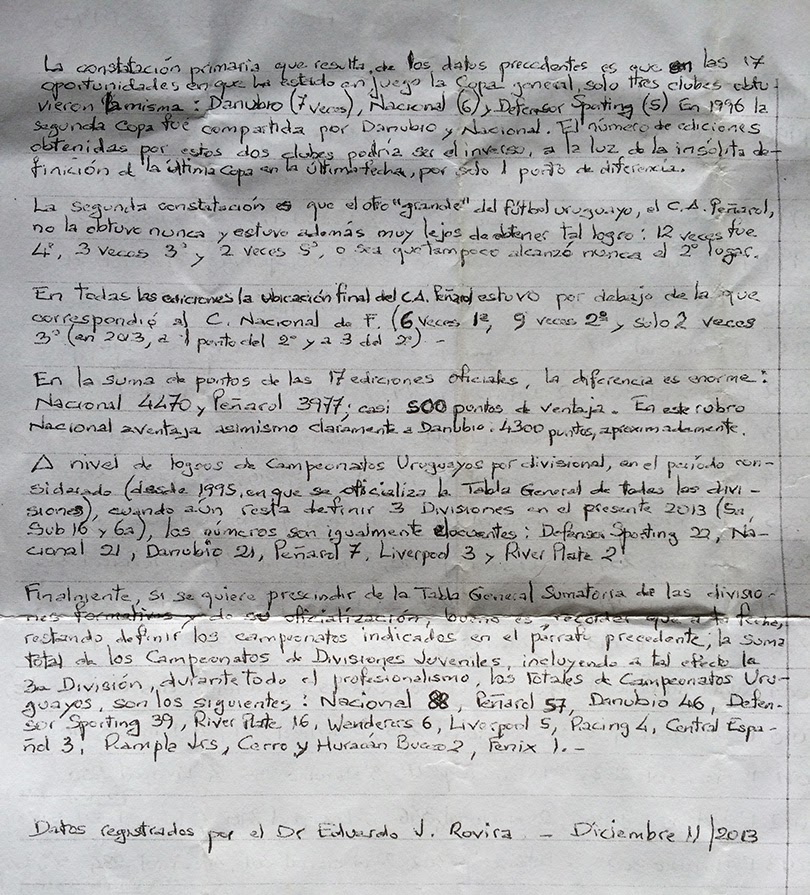 La constatación primaria que resulta de los datos precedentes es que en las 17
oportunidades en que ha estado en juego la Copa general, solo tres clubes obtu-
vieron la misma : Danubio (7 veces), Nacional (6) y Defensor Sporting (5) En 1996 la
segunda Copa fue compartida por Danubio y Nacional. El número de ediciones
obtenidas por estos dos clubes podría ser el inverso, a la luz de la insólita de-
finición de la última Copa en la última fecha, por solo 1 punto de diferencia.
La segunda constatación es que el otro "grande" del fútbol uruguayo, el C.A. Peñarol,
no la obtuvo nunca y estuvo además muy lejos de obtener tal logro : 12 veces fue
4º, 3 veces 3º y 2 veces 5º, o sea que tampoco alcanzó nunca el 2º lugar.
En todas las ediciones la ubicación final del C.A. Peñarol estuvo por debajo de la que
correspondió al C. Nacional de F. (6 veces 1º, 9 veces 2º y solo 2 veces
3º (en 2013, a 1 punto del 2º y a 3 del 2º) -
En la suma de puntos de las 17 ediciones oficiales, la diferencia es enorme :
Nacional 4470 y Peñarol 3977; casi 500 puntos de ventaja. En este rubro
Nacional aventaja asimismo claramente a Danubio : 4300 puntos, aproximadamente.
A nivel de logros de Campeonatos Uruguayos por divisional, en el período con-
siderado (desde 1995, en que se oficializa la Tabla General de todas las divi-
siones), cuando aún resta definir 3 Divisiones en el presente 2013 (5a,
Sub 16 y 6a), los números son igualmente elocuentes : Defensor Sporting 22, Na-
cional 21, Danubio 21, Peñarol 7, Liverpool 3 y River Plate 2.
Finalmente, si se quiere prescindir de la Tabla General Sumatoria de las divisio-
nes formativas y de su oficialización, bueno es recordar que a la fecha,
restando definir los campeonatos indicados en el párrafo precedente, la suma
total de los Campeonatos de Divisiones Juveniles, incluyendo a tal efecto la
3a División, durante todo el profesionalismo, los Totales de Campeonatos Uru-
guayos, son los siguientes : Nacional 88, Peñarol 57, Danubio 46, Defen-
sor Sporting 39, River Plate 16, Wanderers 6, Liverpool 5, Racing 4, Central Espa-
ñol 3, Rampla Jrs, Cerro y Huracán Buceo 2, Fénix 1. -
Datos registrados por el Dr Eduardo J. Rovira - Diciembre 11/2013